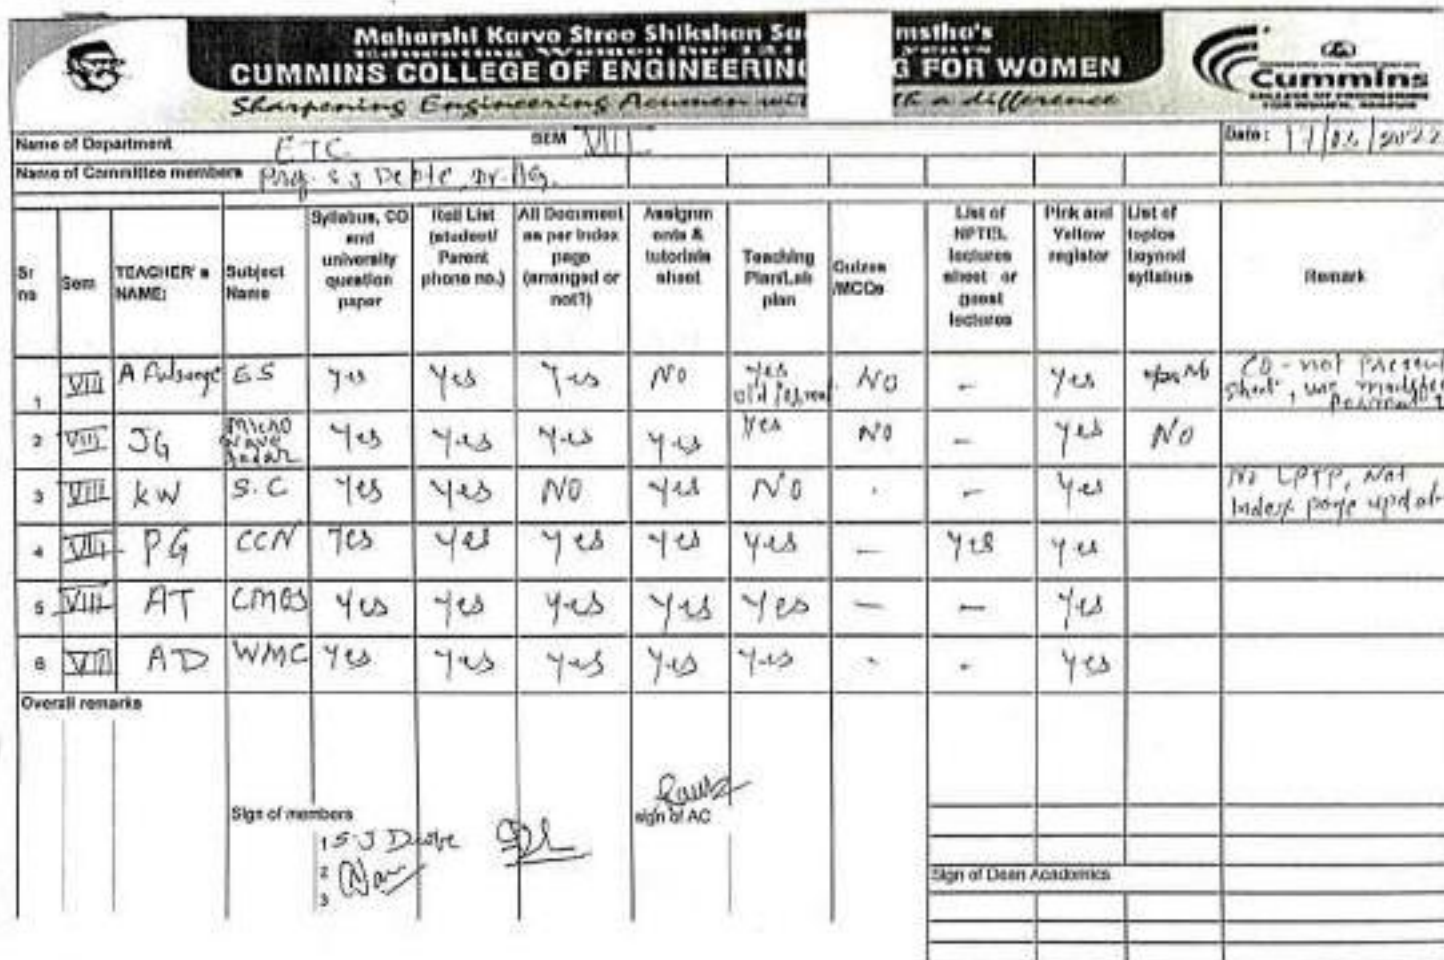 Maharshi Karve Stree Shikshan Sa mstha's
CUMMINS COLLEGE OF ENGINEERING G FOR WOMEN
Sharpening Engineering Acumen wit th a difference
Cummins
COLLEGE OF ENGINEERING
Name of Department ETC SEM VIII Date: 17/06/2022
Name of Committee members Prof. S J
Sr no Sem TEACHER's NAME: Subject Name Syllabus, CO and university question paper Roll List (student/ Parent phone no.) All Document as per Index page (arranged or not?) Assignm ents & tutorials sheet Teaching Plan/Lab plan Quizes /MCQs List of NPTEL lectures sheet or guest lectures Pink and Yellow register List of topics beyond syllabus Remark
1 VIII A ES Yes Yes Yes No Yes No - Yes No CO - not Present
2 VIII JG Micro wave Radar Yes Yes Yes Yes Yes No - Yes No
3 VIII KW S.C Yes Yes NO Yes No - Yes No LPTP, Not Index page updat
4 VIII PG CCN Yes Yes Yes Yes Yes - Yes Yes
5 VIII AT CMOS Yes Yes Yes Yes Yes - - Yes
6 VIII AD WMC Yes Yes Yes Yes Yes - - Yes
Overall remarks
Sign of members sign of AC
1 S.J
2
3
Sign of Dean Academics